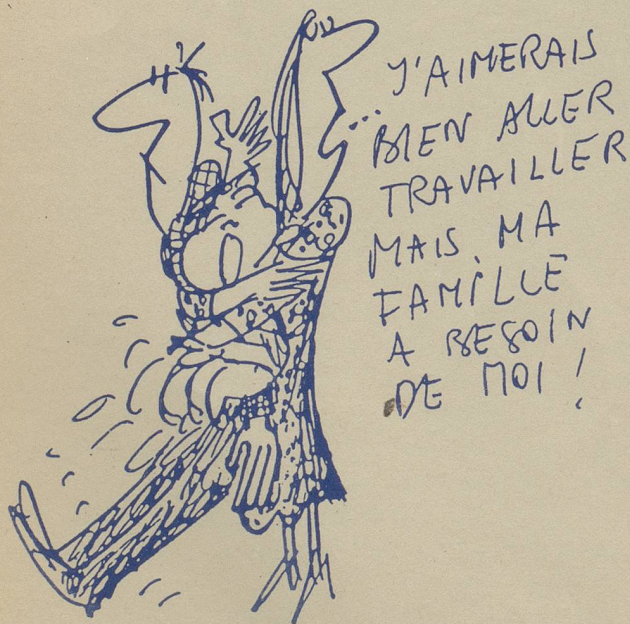 ... J'AIMERAIS
BIEN ALLER
TRAVAILLER
MAIS MA
FAMILLE
A BESOIN
DE MOI !